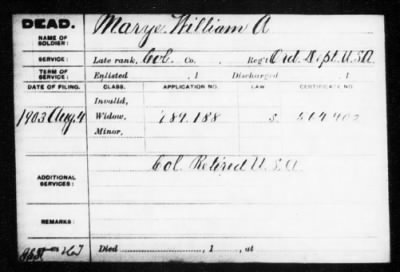 DEAD. Marye William A
NAME OF SOLDIER:
SERVICE: Late rank, Col. Co. , Reg't Ord. Dept. U.S.A
TERM OF SERVICE: Enlisted , 1 Discharged , 1
DATE OF FILING. CLASS. APPLICATION NO. LAW. CERTIFICATE NO.
Invalid,
1903 Aug. 4 Widow, 789.188
Minor,
ADDITIONAL SERVICES: Col. Retired U.S.A.
REMARKS:
Died , 1 , at